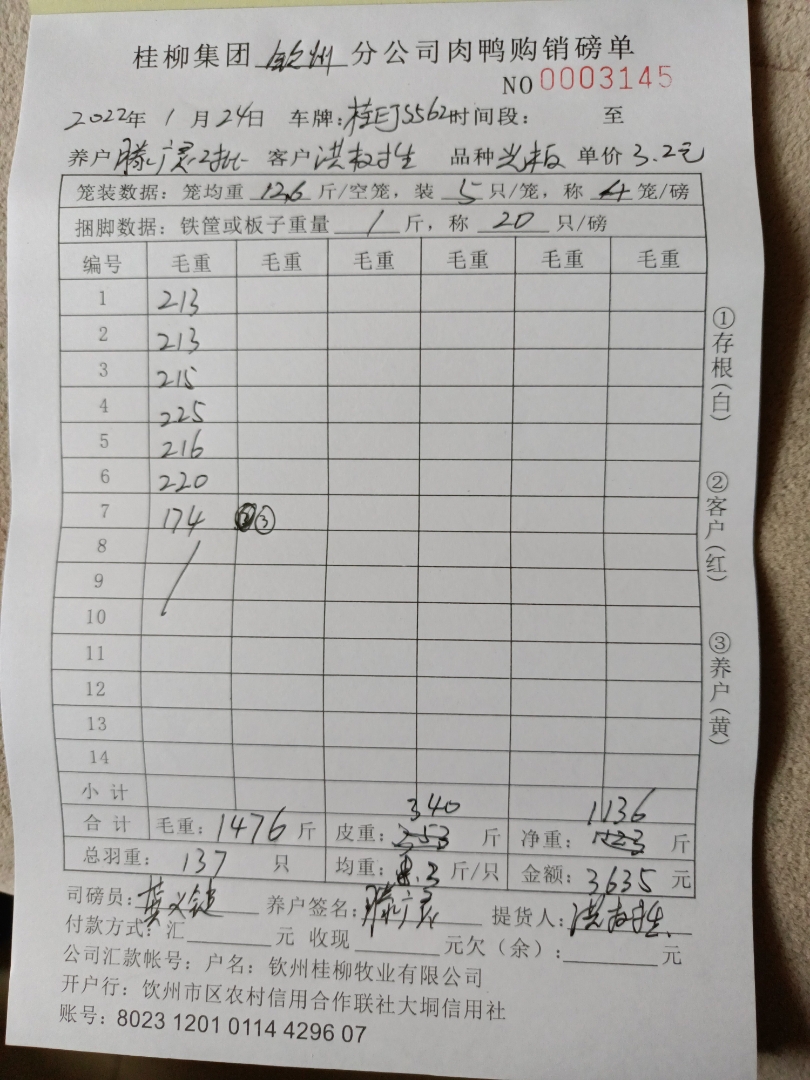 桂柳集团 钦州 分公司肉鸭购销磅单
NO 0003145
2022年 1 月 24日 车牌:桂EJ5562 时间段: 至
养户 滕广灵2批 客户 洪 品种 光板 单价 3.2元
笼装数据: 笼均重 12.6 斤/空笼, 装 5 只/笼, 称 4 笼/磅
捆脚数据: 铁筐或板子重量 1 斤, 称 20 只/磅
编号 毛重 毛重 毛重 毛重 毛重 毛重
1 213
2 213
3 215
4 225
5 216
6 220
7 174 ③
8
9
10
11
12
13
14
小计
340 1136
合计 毛重: 1476 斤 皮重: 353 斤 净重: 1123 斤
总羽重: 137 只 均重: 8.3 斤/只 金额: 3635 元
司磅员: 养户签名: 滕广灵 提货人: 洪
付款方式: 汇 元 收现 元欠(余): 元
公司汇款帐号: 户名: 钦州桂柳牧业有限公司
开户行: 钦州市区农村信用合作联社大垌信用社
账号: 8023 1201 0114 4296 07
①存根(白)
②客户(红)
③养户(黄)